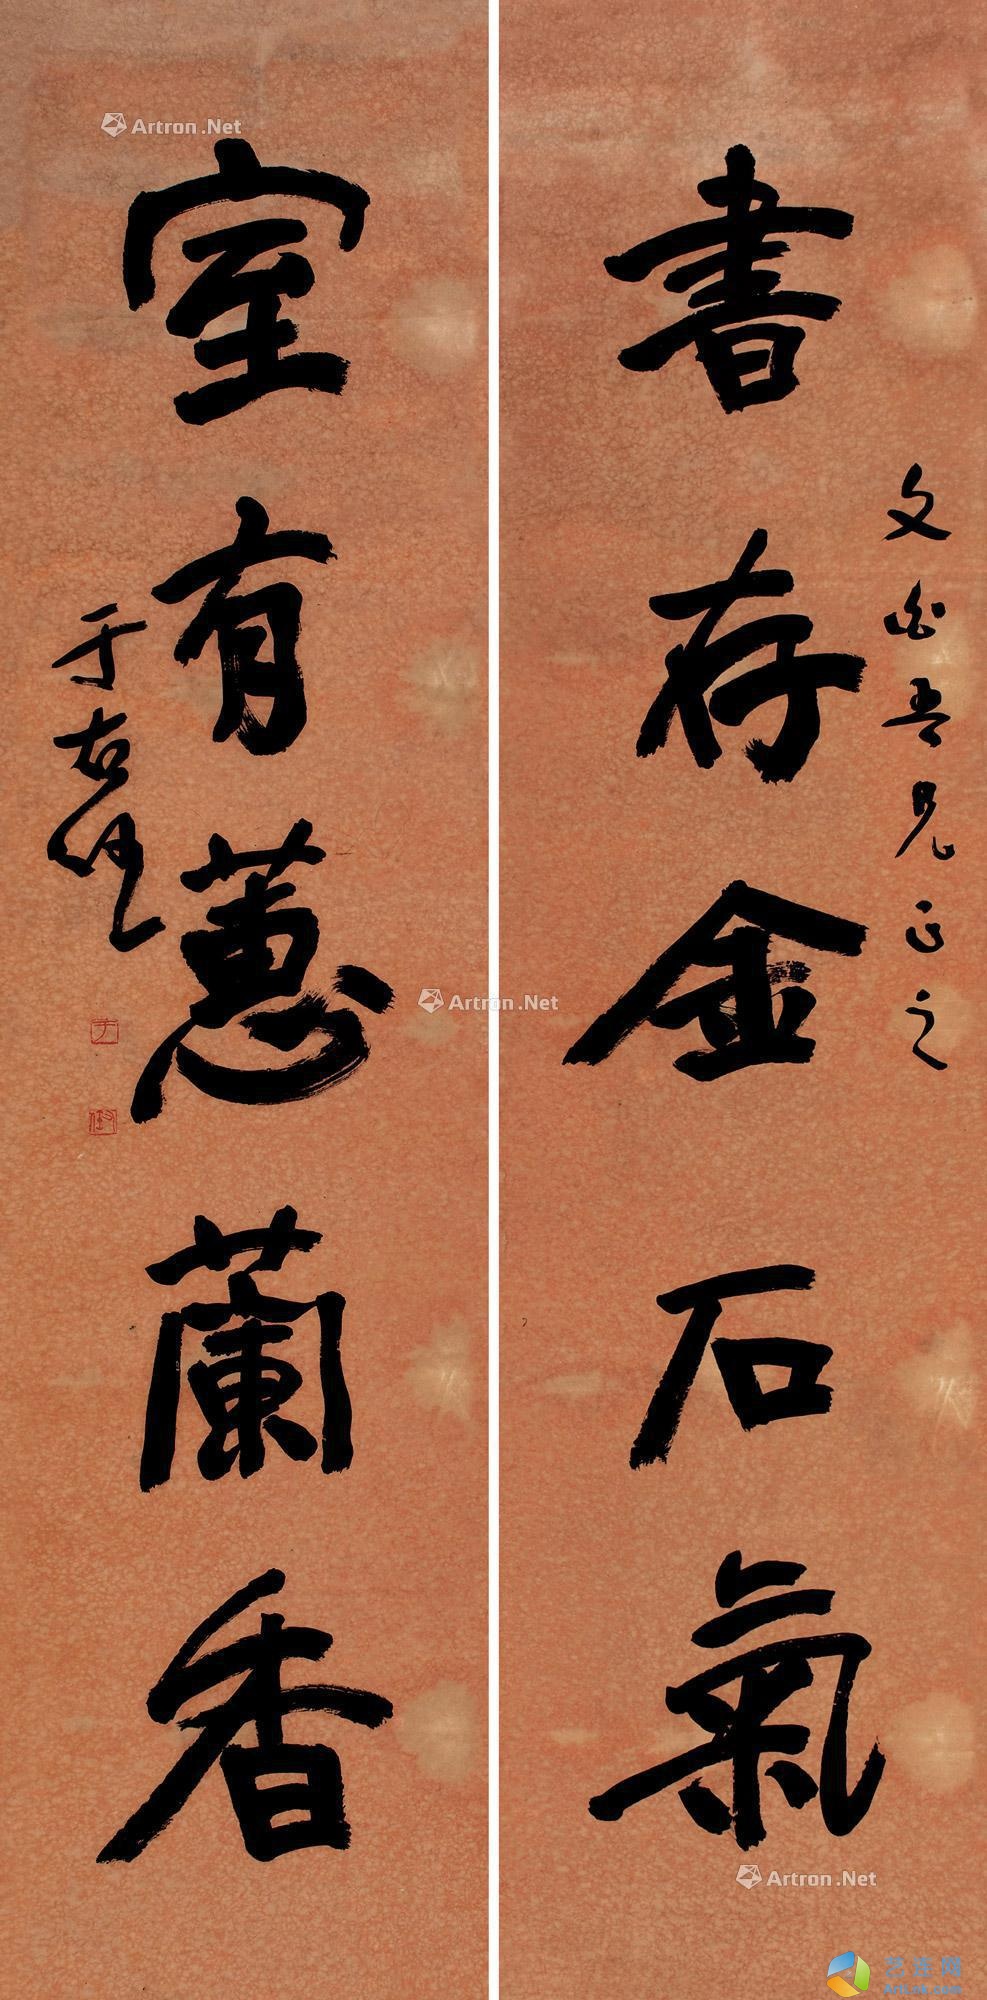 書存金石氣
文白吾兄正之
室有蕙蘭香
于右任
于
右任
Artron.Net
Artron.Net
Artron.Net
Artron.Net